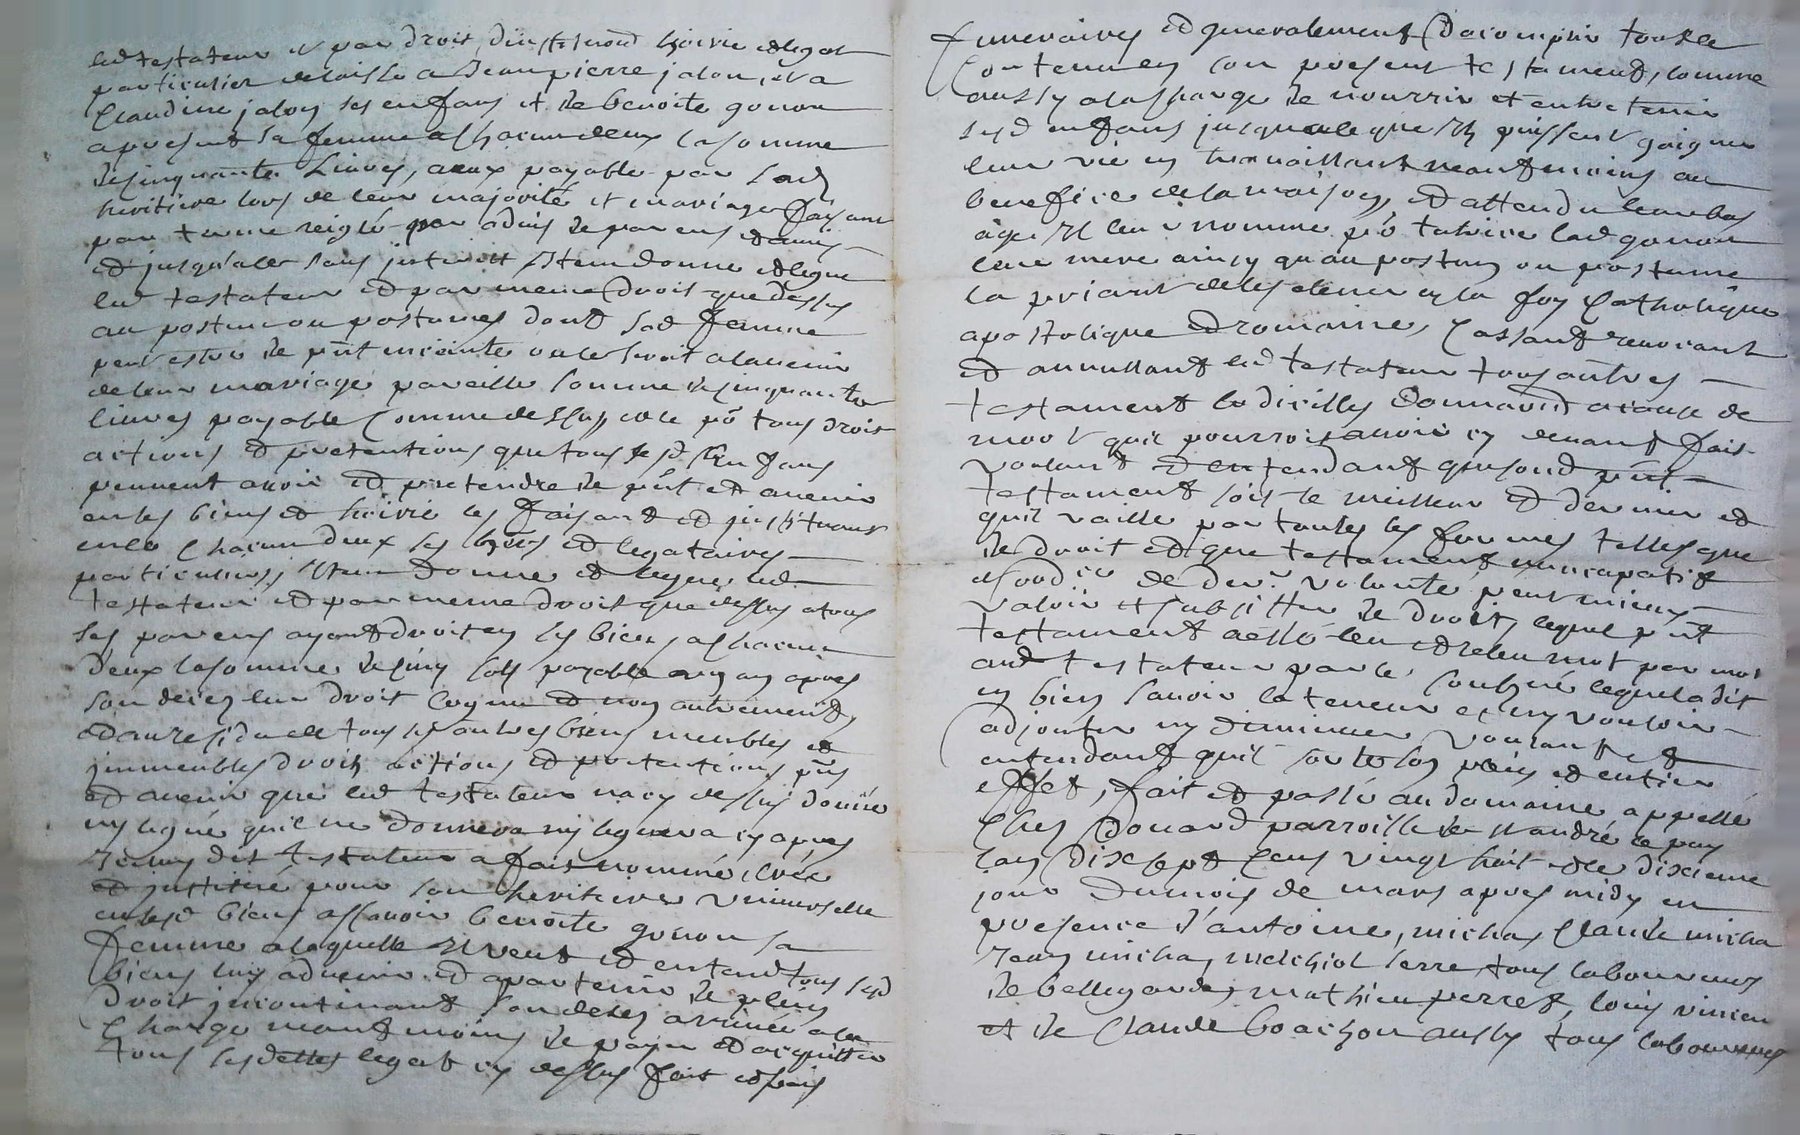 led testateur et par droit d'institution hoirie et legat
particulier delaisse a Jean pierre jalon, et a
Claudine jalon ses enfans et de benoite gonon
apresent sa femme a chacun deux la somme
de cinquante Livres, a eux payable par lad
heritiere lors de leur majorité et mariage faisant
par terme reiglé par advis de parens et amis
et jusqu'alor sans interest Item donne et legue
led testateur et par meme droit que dessus
au postume ou postumes dont sad femme
peut estre de pnt enceinte ou le seroit a lavenir
de leur mariage pareille somme de cinquante
livres payable comme dessus, et ce po tous droit
actions et pretentions que tous sesd Enfans
peuvent avoir et pretendre de pnt et avenir
en ses biens et hoirie les faisant et instituant
en ce chacun deux ses hers et legataires
particuliers, Item donne et legue led
testateur et par meme droit que dessus a tous
ses parens ayant droit en ses biens a chacun
deux la somme de cinq sols payable un an apres
son deces leur droit cognu et non autrement,
et au residu de tous ses autres biens meubles et
immeubles droits actions et pretentions pnts
et avenir que led testateur n'a cy dessus donné
ny legué qu'il ne donnera ny leguera cy apres
Iceluy dit testateur a fait nommé, créé
et institué pour son heritiere universelle
en sesd biens assavoir benoite gonon sa
femme a laquelle Il veut et entend tous sesd
biens luy advenir et apartenir de plein
droit incontinant son deces arrivé a la
charge neantmoins de payer et acquitter
tous ses dettes legats cy dessus fait et frais
funeraires et generalement d'acomplir tout le
Contenu en son present testament, comme
aussy a la charge de nourrir et entretenir
sesd enfans jusqu'a ce que Ils puissent gaigner
leur vie en travaillant neantmoins au
benefice de la maison, et attendu leur bas
age Il leur nomme po tutrice lad gonon
leur mere ainsy qu'au postum ou postume
la priant de les elever en la foy Catholique
apostolique et romaine, Cassant revocant
et annullant led testateur tous autres
testament codicilles donnation a cause de
mort quil pourroit avoir cy devant fait
voulant et entendant que sond pnt
testament soit le meilleur et dernier et
quil vaille par toutes les formes telles que
de droit et que testament nuncupatif
et ord.re de der.re volonté peut mieux
valoir et subsister de droit, lequel pnt
testament a esté leu et releu mot par mot
aud testateur par le soubné lequel a dit
en bien savoir la teneur et ny vouloir
adjouter ny diminuer voulant et
entendant quil sorte son plein et entier
effet, fait et passé au domaine appellé
chez Douard parroisse de st andré le puy
lan dix sept Cens vingt huit et le dixieme
jour du mois de mars apres midy en
presence d'antoine, michas Claude micha
Jean micha, melchiol serre, tous laboureurs
de bellegarde, mathieu perret, louis vincen
et de Claude boachon aussy tous laboureurs